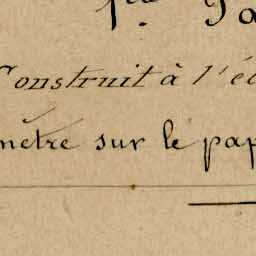 Construit à l'éc
mètre sur le pap